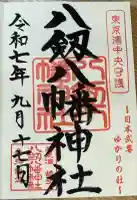 東京湾中央守護
八剱八幡神社
〜日本武尊
ゆかりの社〜
令和七年九月十七日